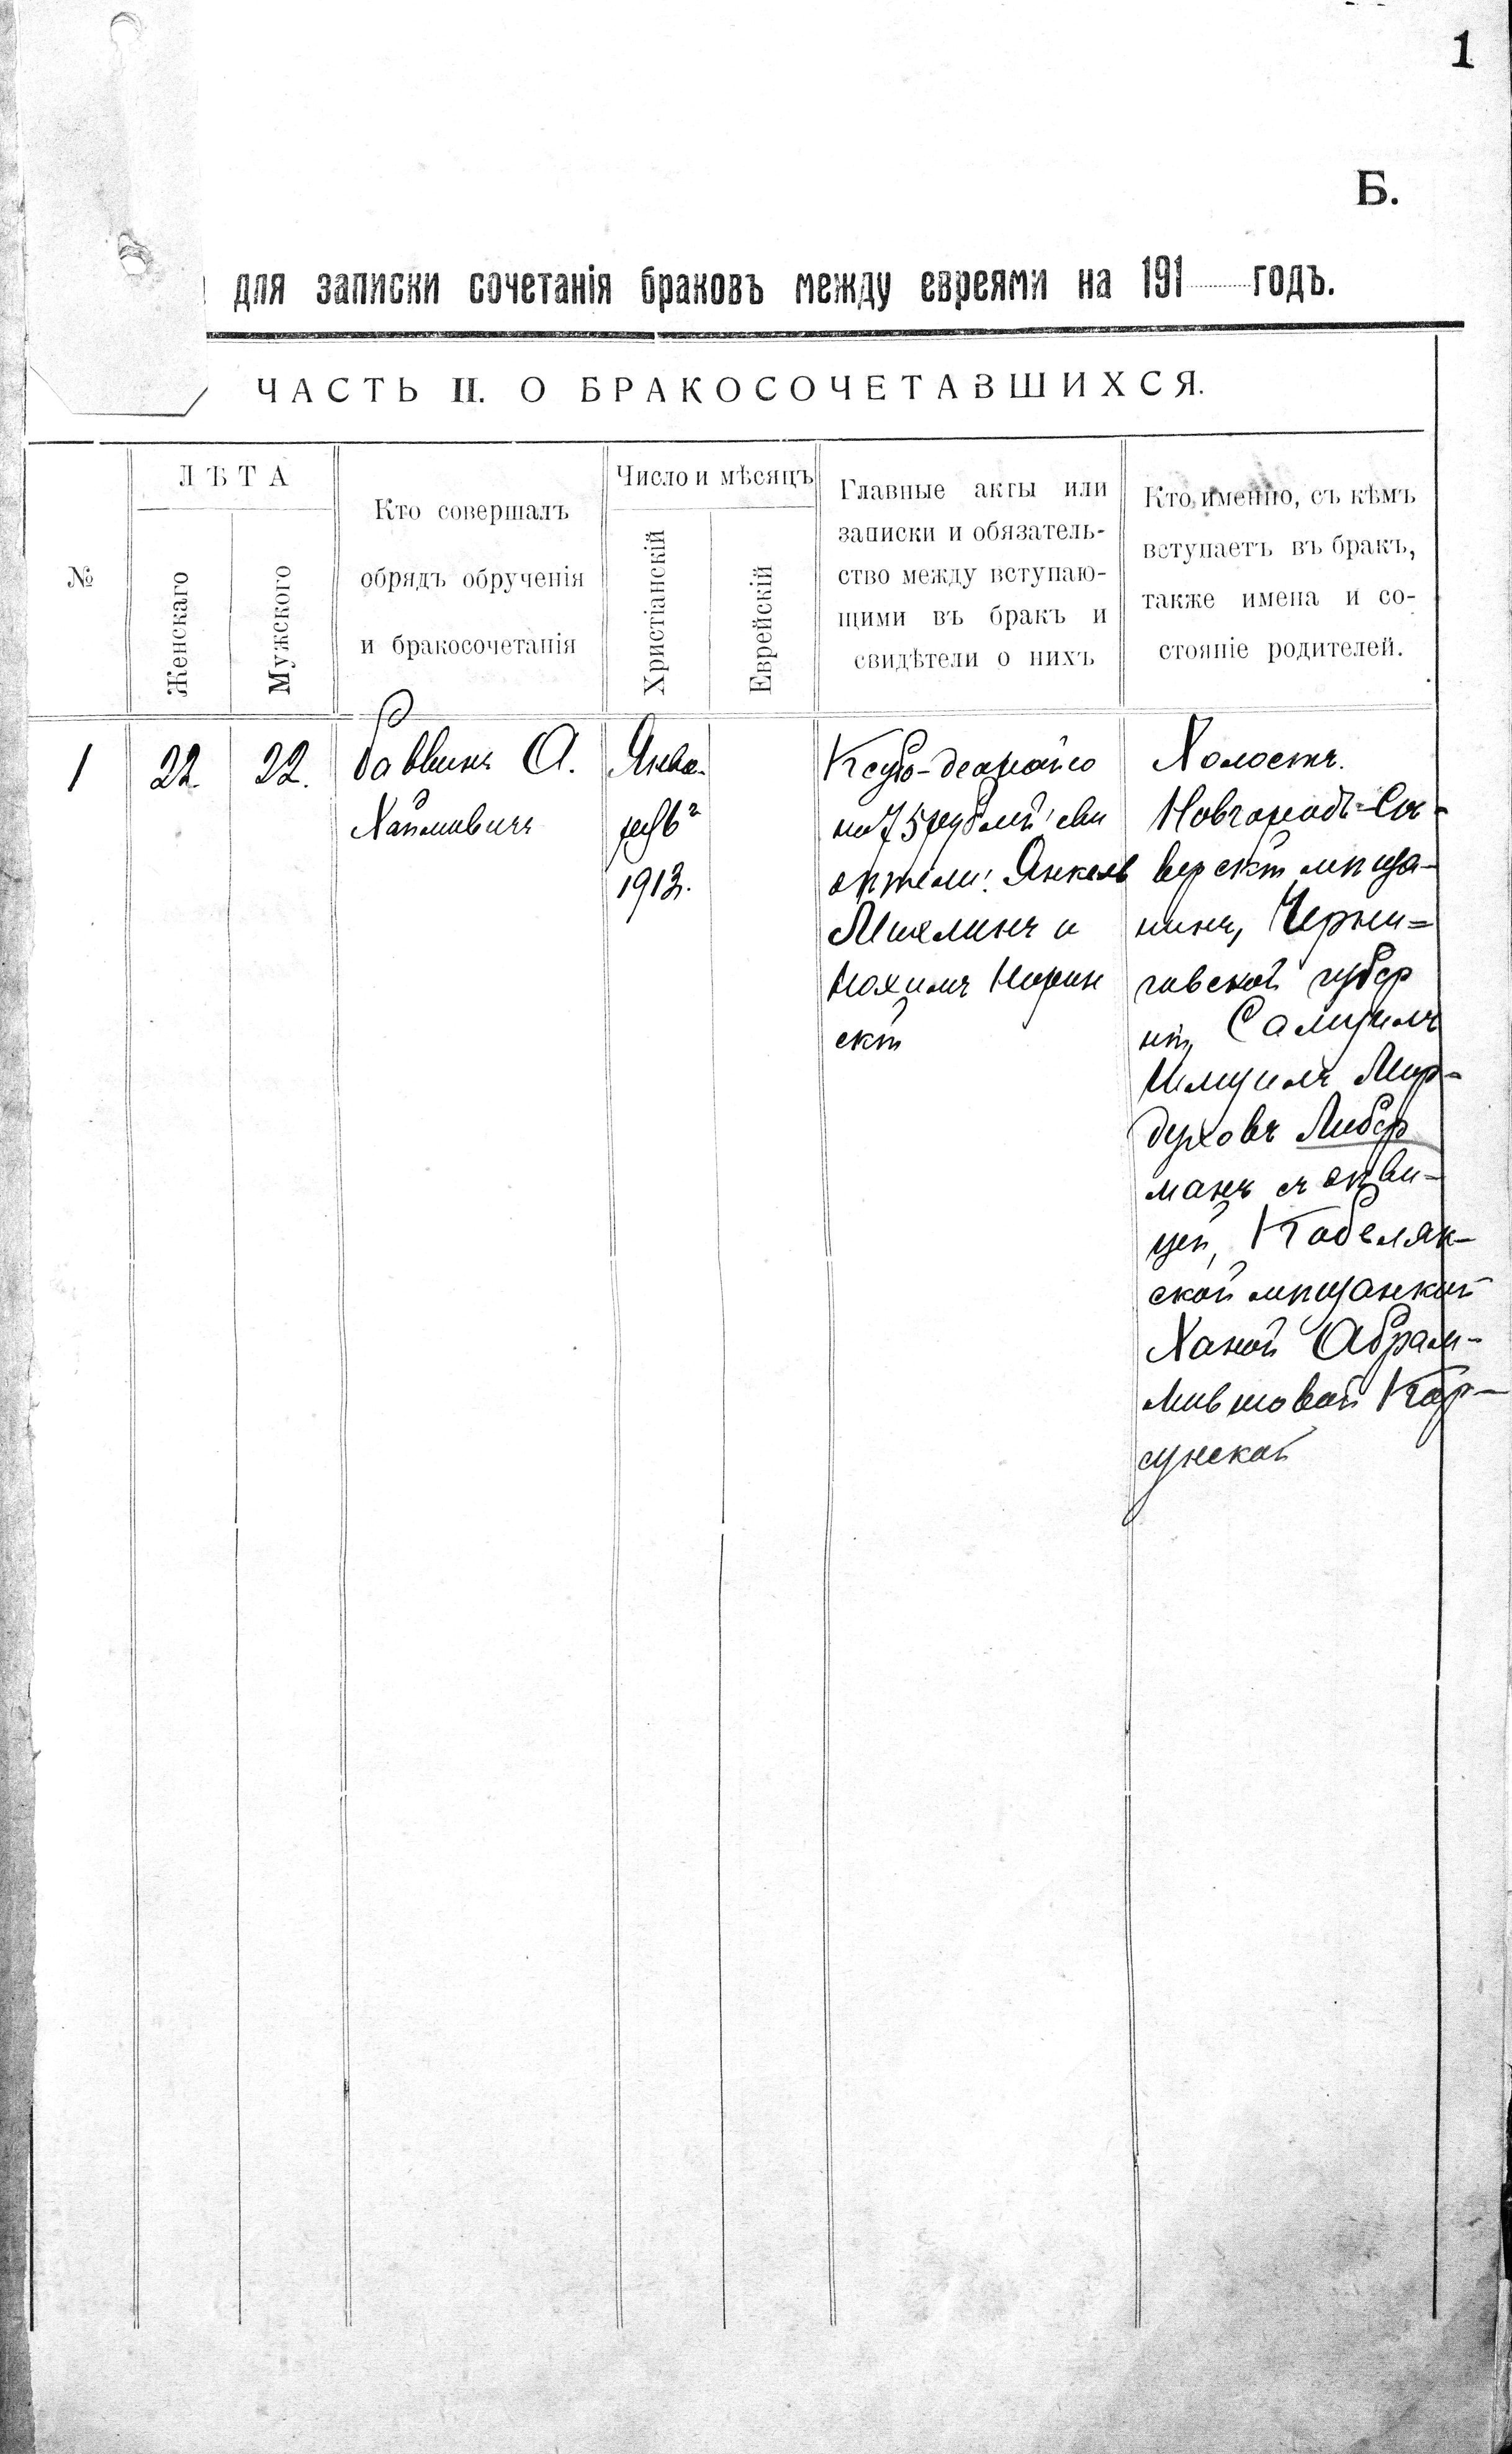 1
Б.
для записки сочетанія браковъ между евреями на 191 годъ.
ЧАСТЬ II. О БРАКОСОЧЕТАВШИХСЯ.
№
ЛѢТА
Женскаго
Мужского
Кто совершалъ
обрядъ обрученія
и бракосочетанія
Число и мѣсяцъ
Христіанскій
Еврейскій
Главные акты или
записки и обязатель-
ство между вступаю-
щими въ бракъ и
свидѣтели о нихъ
Кто именно, съ кѣмъ
вступаетъ въ бракъ,
также имена и со-
стояніе родителей.
1
22.
22.
Раввинъ А.
Хаймовичъ
Янва-
1913.
на 75 рублей сви
дѣтели: Янкель
и
Нохимъ
скій
Холостъ.
Новгородъ-Сѣ-
верскій мѣща-
нинъ, Черни-
говской губер
ніи, Самуилъ
Шмуилъ Мор-
духовъ Либер
манъ съ дѣви-
цей, Кобеляк-
ской мѣщанкой
Ханой Абрам-
Мившовой Кор-
сунской